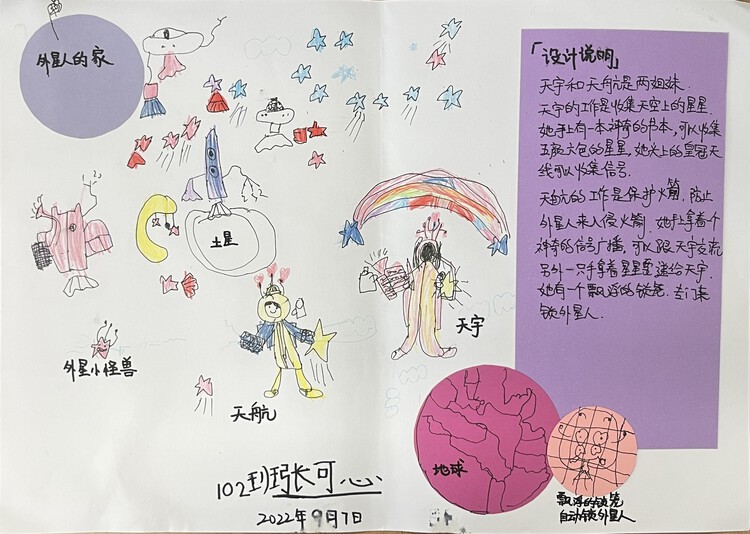 外星人的家
土星
外星小怪兽
天航
天宇
102班张可心
2022年9月7日
地球
飘浮的锁笼
自动锁外星人
「设计说明」
天宇和天航是两姐妹.
天宇的工作是收集天空上的星星.
她手上有一本神奇的书本,可以收集
五颜六色的星星,她头上的皇冠天
线可以收集信号.
天航的工作是保护火箭,防止
外星人来入侵火箭.她手上拿着个
神奇的信号广播,可以跟天宇交流
另外一只手拿着星星要递给天宇.
她有一个飘浮的锁笼.专门来
锁外星人.